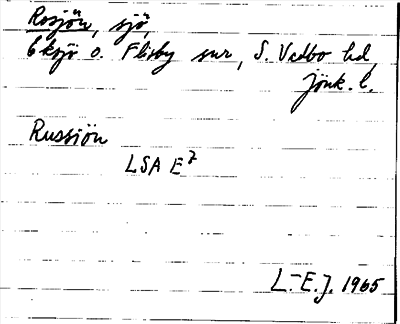 Rosjön, sjö,
Eksjö o. Flisby snr, S. Vedbo hd,
Jönk. l.
Russiön
LSA E7
L.-E.J. 1965